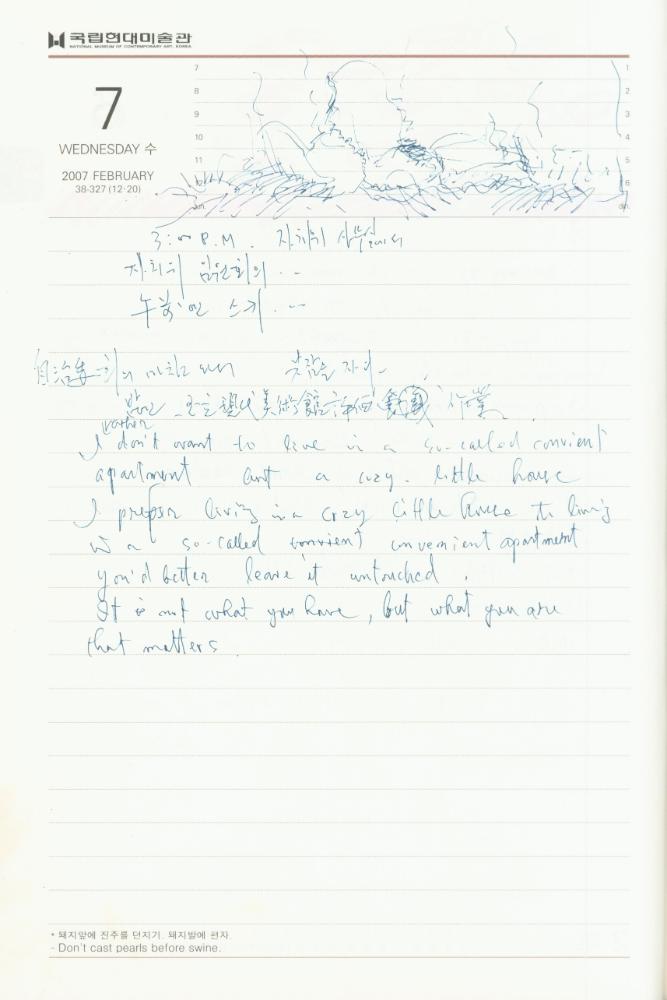 국립현대미술관
NATIONAL MUSEUM OF CONTEMPORARY ART, KOREA
7
WEDNESDAY 수
2007 FEBRUARY
38-327 (12·20)
7
8
9
10
11
1
2
3
4
5
6
3:00 P.M. 자치회 사무실에서
자치회 임원회의 ..
自治 마치고 와서
美術館 作業
rather
I don't want to live in a so-called convient
apartment but a cozy. little house
I prefer living in a crzy little house to living
in a so-called convient convenient apartment
you'd better leave it untouched.
It is not what you have, but what you are
that matters.
* 돼지앞에 진주를 던지기. 돼지발에 편자.
- Don't cast pearls before swine.